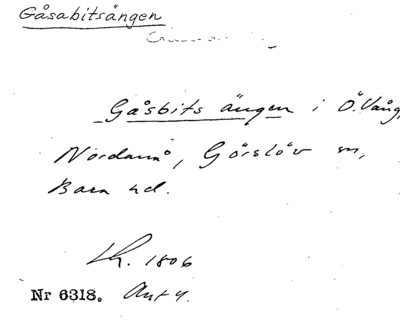 Gåsabitsängen
Gåsbits ängen i Ö. Vång,
Nordanå, Görslöv sn,
Bara hd.
Lh. 1806
Nr 6318. Akt 4.